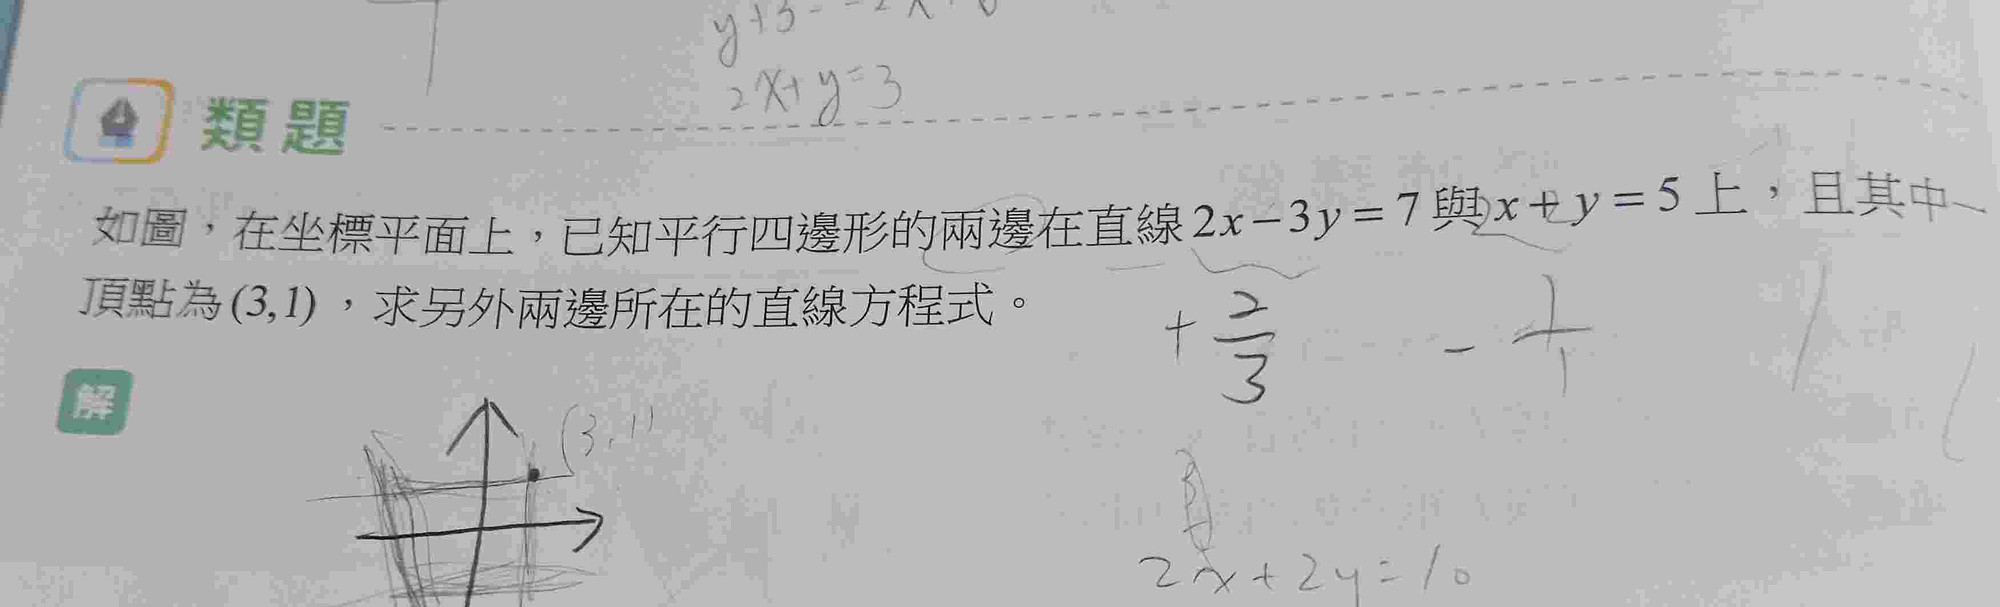 2x+y=3
類題
如圖，在坐標平面上，已知平行四邊形的兩邊在直線2x−3y=7與x+y=5上，且其中一
頂點為(3,1)，求另外兩邊所在的直線方程式。
+2/3 −1/1
解
(3,1)
2x+2y=10